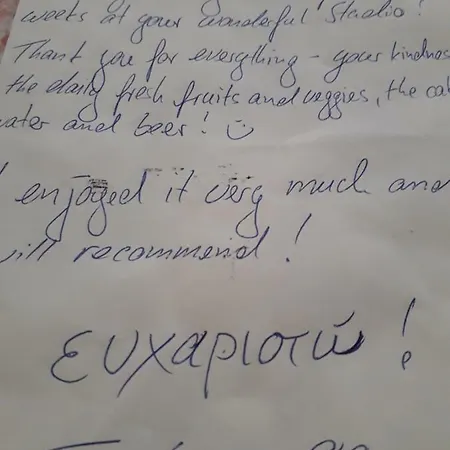 weeks at your wonderful Studio!
Thank you for everything – your kindness
the daily fresh fruits and veggies, the
water and beer! ☺
enjoyed it very much and
will recommend!
ευχαριστώ!